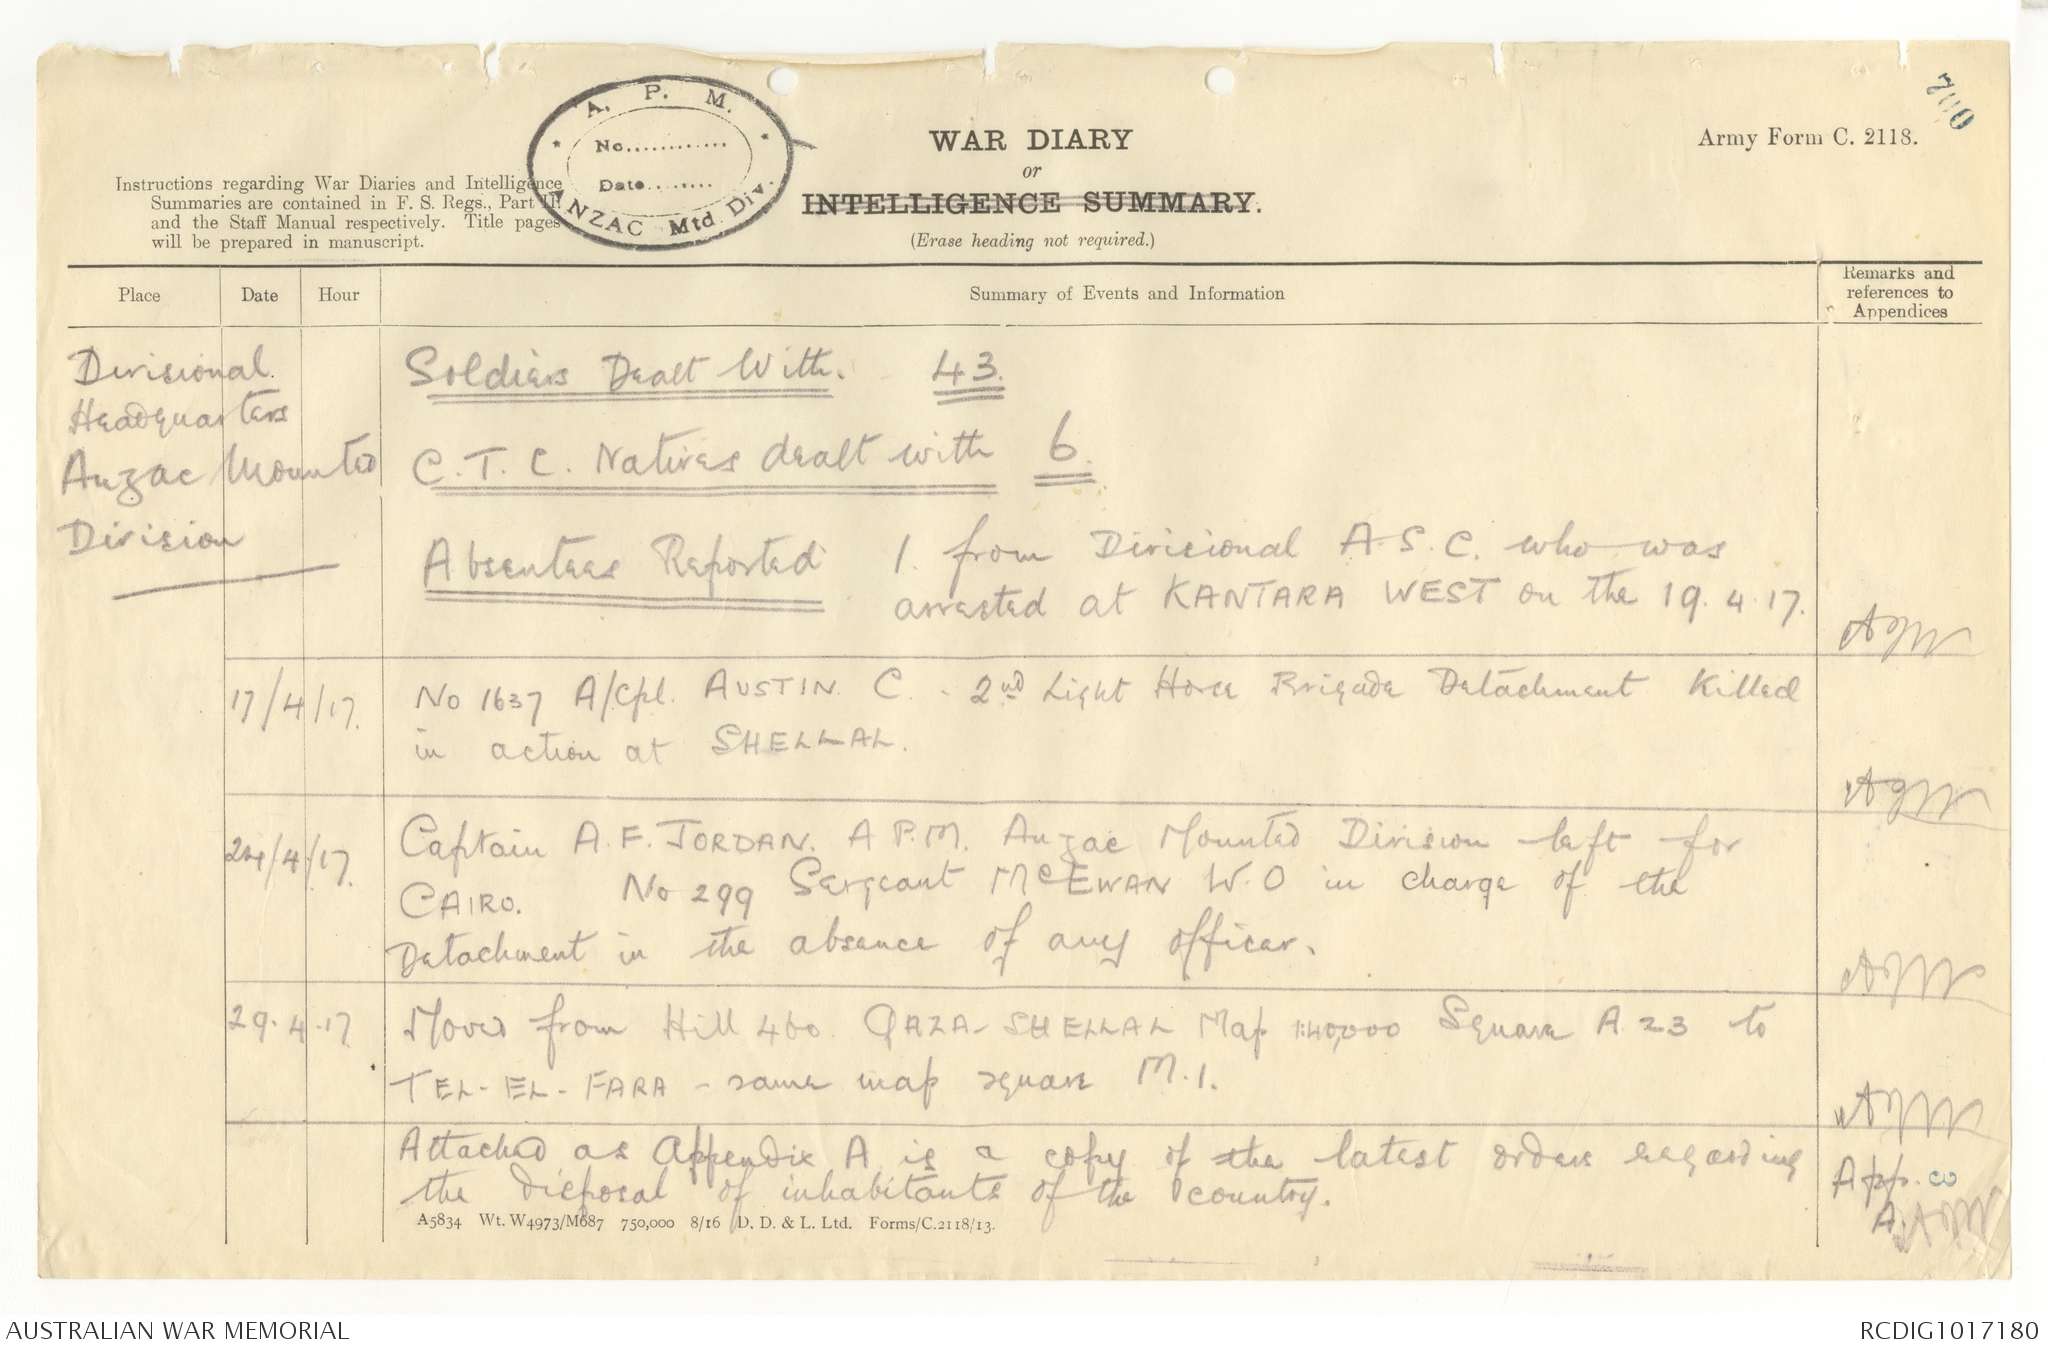 A. P. M.
No............
Date........
ANZAC Mtd. Div.
WAR DIARY
or
INTELLIGENCE SUMMARY.
(Erase heading not required.)
Army Form C. 2118.
Instructions regarding War Diaries and Intelligence
Summaries are contained in F. S. Regs., Part II.
and the Staff Manual respectively. Title pages
will be prepared in manuscript.
Place Date Hour Summary of Events and Information Remarks and references to Appendices
Divisional
Headquarters
Anzac Mounted
Division
Soldiers Dealt With. 43.
C.T.C. Natives dealt with 6.
Absentees Reported 1. from Divisional A.S.C. who was
arrested at KANTARA WEST on the 19.4.17.
17/4/17. No 1637 A/Cpl. AUSTIN C. - 2nd Light Horse Brigade Detachment Killed
in action at SHELLAL.
24/4/17. Captain A.F. JORDAN. A P.M. Anzac Mounted Division left for
CAIRO. No 299 Sergeant McEWAN W.O in charge of the
Detachment in the absence of any officer.
29.4.17 Moved from Hill 460. GAZA-SHELLAL Map 1:40,000 Square A.23 to
TEL-EL-FARA - same map square M.1.
Attached as Appendix A is a copy of the latest orders regarding
the disposal of inhabitants of the country.
App.
A.
A5834 Wt. W4973/M687 750,000 8/16 D. D. & L. Ltd. Forms/C.2118/13.
AUSTRALIAN WAR MEMORIAL
RCDIG1017180